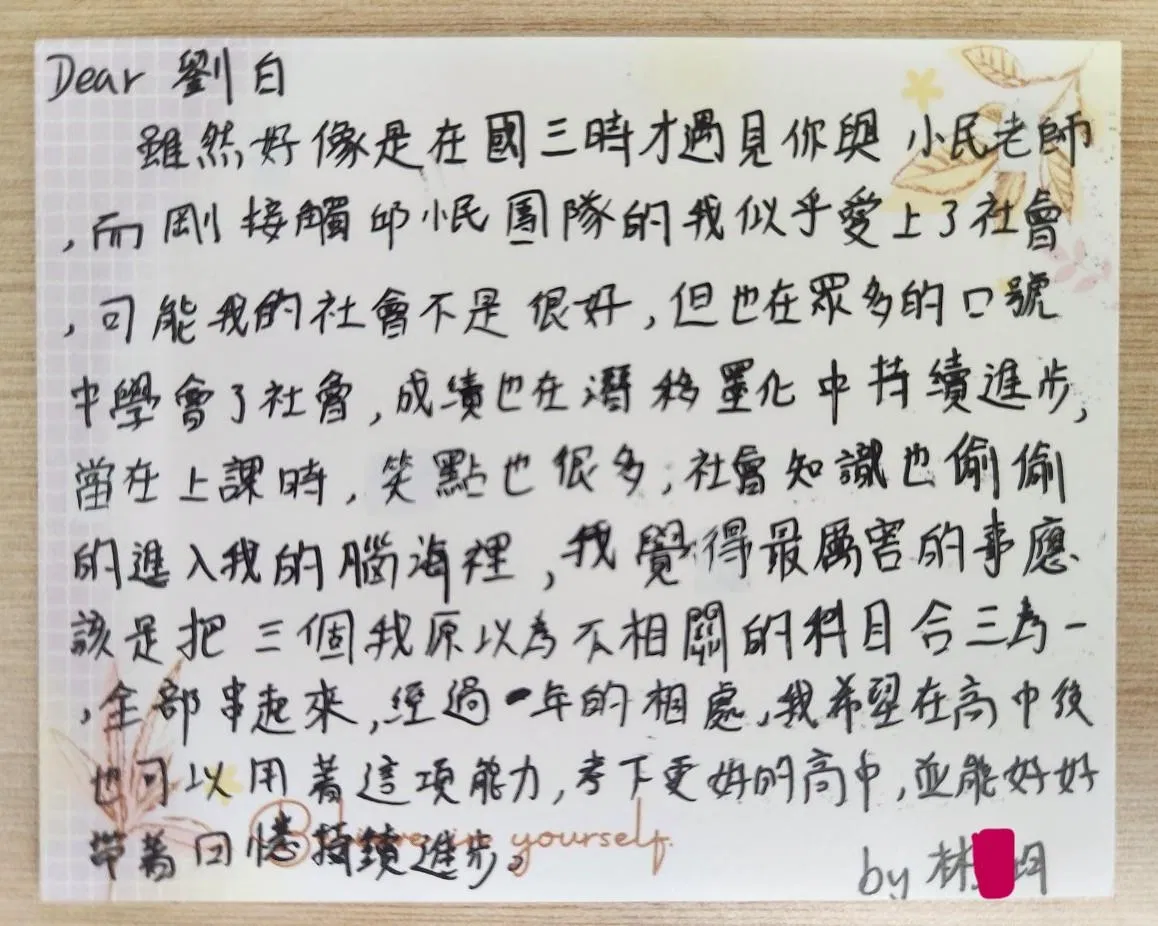 Dear 劉白
雖然好像是在國三時才遇見你與小民老師
,而剛接觸邱小民團隊的我似乎愛上了社會
,可能我的社會不是很好,但也在眾多的口號
中學會了社會,成績也在潛移墨化中持續進步,
當在上課時,笑點也很多,社會知識也偷偷
的進入我的腦海裡,我覺得最厲害的事應
該是把三個我原以為不相關的科目合三為一
,全部串起來,經過一年的相處,我希望在高中後
也可以用著這項能力,考下更好的高中,並能好好
帶著回憶持續進步。
yourself.
by 林 明